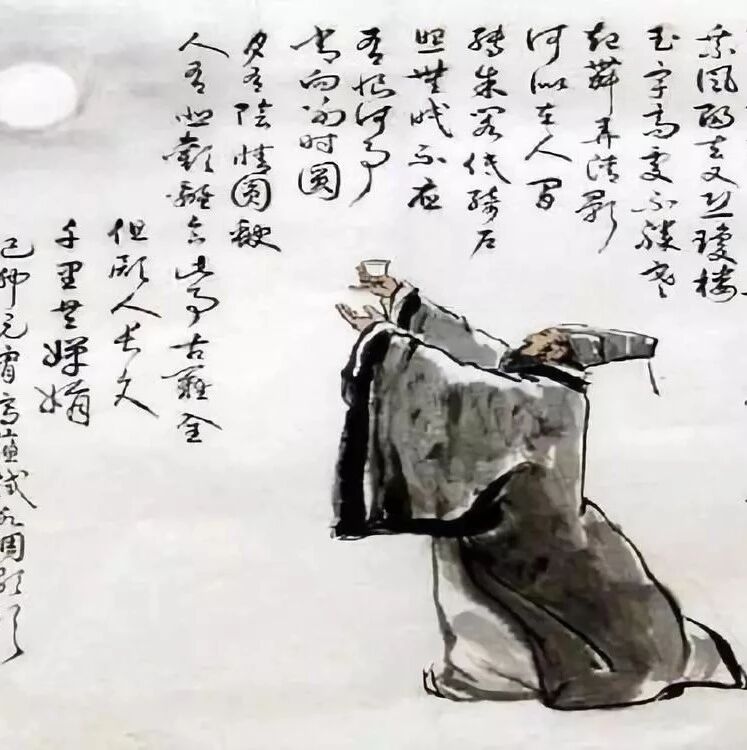 乘風歸去又恐瓊樓
玉宇高處不勝寒
起舞弄清影
何似在人間
轉朱閣低綺户
照無眠不應
有恨何事
長向別時圓
月有陰晴圓缺
人有悲歡離合此事古難全
但願人長久
千里共嬋娟
己卯元宵寫